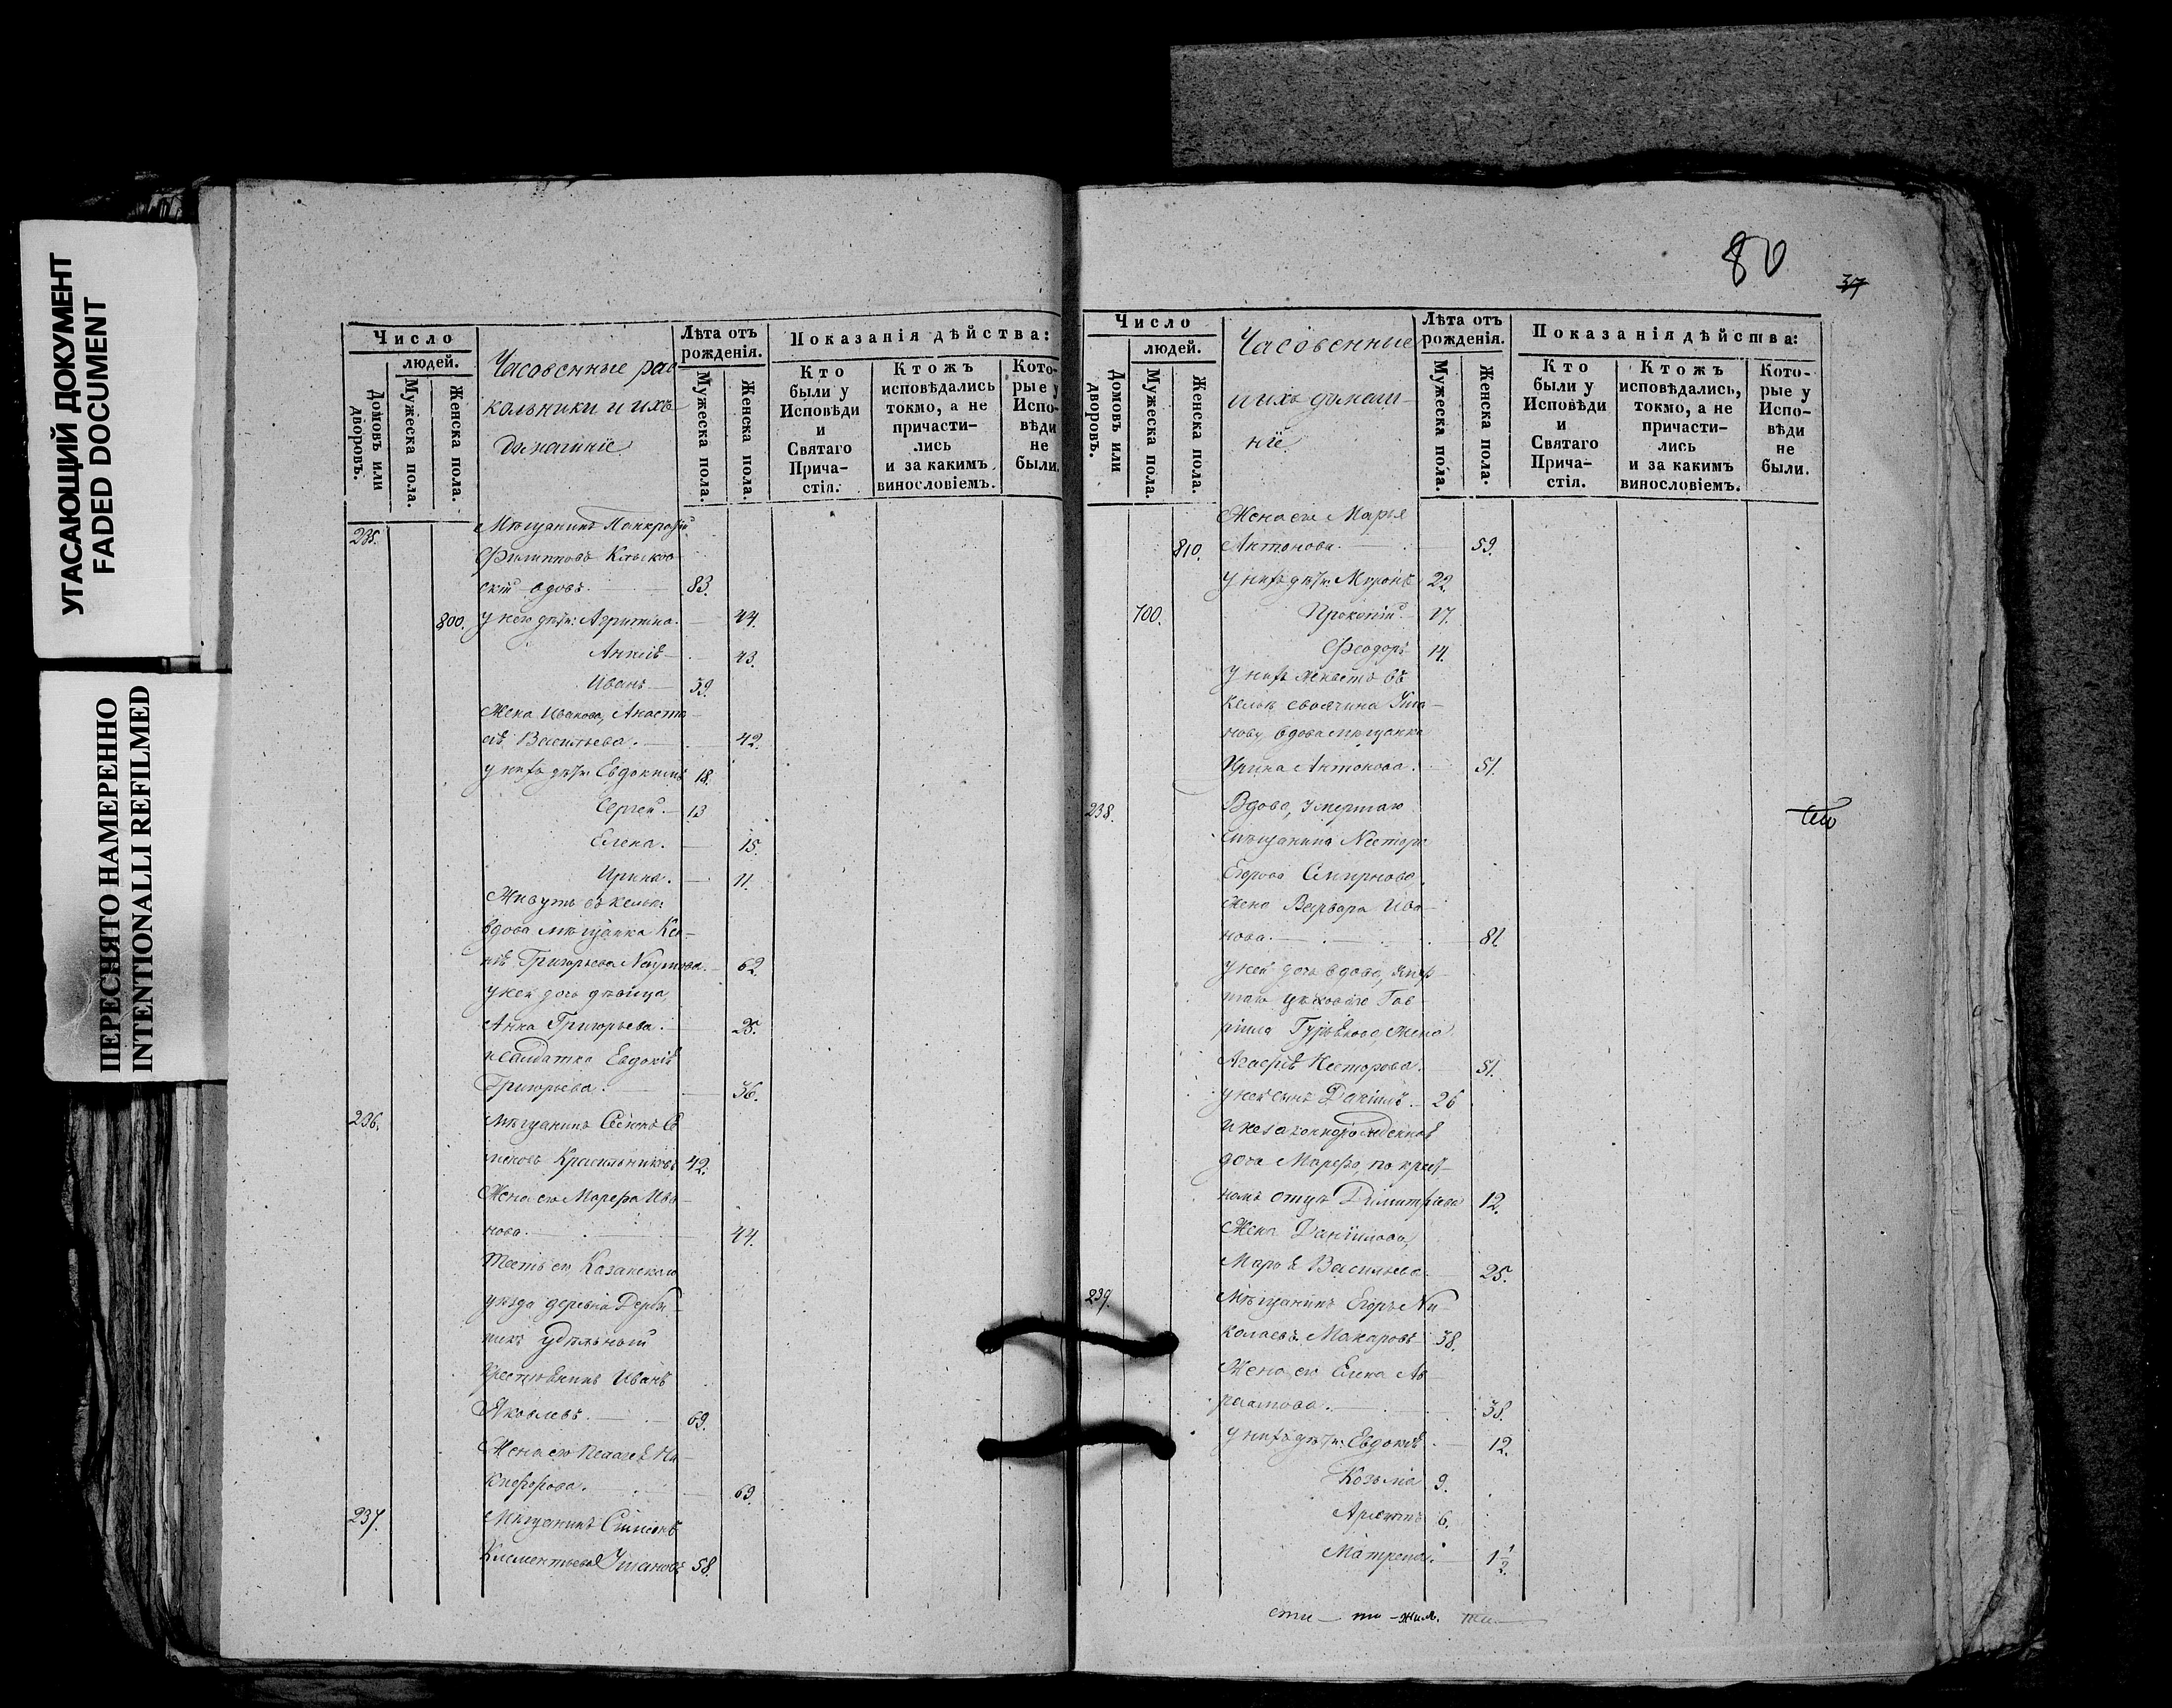 УГАСАЮЩИЙ ДОКУМЕНТ
FADED DOCUMENT
ПЕРЕСНЯТО НАМЕРЕННО
INTENTIONALLI REFILMED
Число
людей.
Домовъ или дворовъ.
Мужеска пола.
Женска пола.
Часовенные рас
кольники и ихъ
домашніе
Лѣта отъ рожденія.
Мужеска пола.
Женска пола.
Показанія дѣйства:
Кто были у Исповѣди и Святаго Прича-стія.
Ктожъ исповѣдались токмо, а не причасти-лись и за какимъ винословіемъ.
Кото-рые у Испо-вѣди не были.
235. Мѣщанинъ Панкратій
Филипповъ
скій вдовъ 83.
800. у него дѣти: Агрипина 44.
43.
Иванъ 39.
Жена Иванова, Анаста
сія Васильева. 42.
у нихъ дѣти: Евдокимъ 18.
Сергей 13
Елена. 15.
Ирина. 11.
Живутъ въ кельѣ:
вдова мѣщанка Ксе-
нія Григорьева Наумова. 62.
у ней дочь дѣвица,
Анна Григорьева. 25.
и салдатка Евдокія
Григорьева. 36.
236. Мѣщанинъ Семенъ Се
меновъ Красильниковъ 42.
Жена его Марѳа Ива-
нова. 44.
Тесть его Казанскаго
уѣзда деревни Дербы-
шекъ удѣльный
крестьянинъ Иванъ
Яковлевъ. 69.
Жена его Пелагея Ни-
кифорова. 69.
237. Мѣщанинъ Симеонъ
Клементьевъ Ушановъ 58.
80
37
Число
людей.
Домовъ или дворовъ.
Мужеска пола.
Женска пола.
Часовенные
и ихъ домаш-
ніе.
Лѣта отъ рожденія.
Мужеска пола.
Женска пола.
Показанія дѣйства:
Кто были у Исповѣди и Святаго Прича-стія.
Ктожъ исповѣдались, токмо, а не причасти-лись и за какимъ винословіемъ.
Кото-рые у Испо-вѣди не были.
Жена его Марья
810. Антонова. 59.
у нихъ дѣти: Миронъ 22.
700. Прокопій 17.
Феодоръ 14.
у нихъ живетъ въ
кельѣ своячина Уша-
нову, вдова мѣщанка
Ирина Антонова. 51.
238. Вдова, умершаго
мѣщанина Нестора
Егорова Смирнова,
жена Варвара Ива-
нова. 81.
у ней дочь вдова, умер-
шаго цѣховаго Гав-
ріила жена
Агафія Несторова. 51.
у ней сынъ Даніилъ 26
и незаконнорожденная
дочь Марѳа, по крест-
номъ отцѣ Димитріева 12.
Жена Даніилова,
Марья Васильева 25.
239. Мѣщанинъ Егоръ Ни-
колаевъ Макаровъ 38.
Жена его Елена Ав-
раамова. 38.
у нихъ дѣти: Евдокія 12.
Козьма 9.
6.
Матрена. 1½.